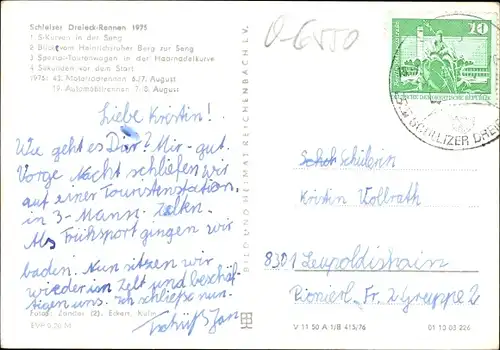 Schleizer Dreieck-Rennen 1975
1 S-Kurven in der Seng
2 Blick vom Heinrichsruher Berg zur Seng
3 Spezial-Tourenwagen in der Haarnadelkurve
4 Sekunden vor dem Start
1976: 43. Motorradrennen 6./7. August
19. Automobilrennen 7./8. August
Q-6550
10
DEUTSCHE DEMOKRATISCHE REPUBLIK
SCHLEIZER
Liebe Kristin!
Wie geht es Dir? Mir - gut.
Vorge Nacht schliefen wir
auf einer Touristenstation,
in 3-Mann-Zelten.
Als Frühsport gingen wir
baden. Nun sitzen wir
wieder im Zelt und beschäf-
tigen uns. Ich schließe nun.
Tschüß Jan
Schülerin
Kristin Vollrath
8301 Leupoldishain
Pionierl. Gruppe 2
BILD UND HEIMAT REICHENBACH I. V.
Fotos: Zander (2), Eckert, Kuhn
EVP 0,20 M
V 11 50 A 1/B 415/76
01 10 03 226